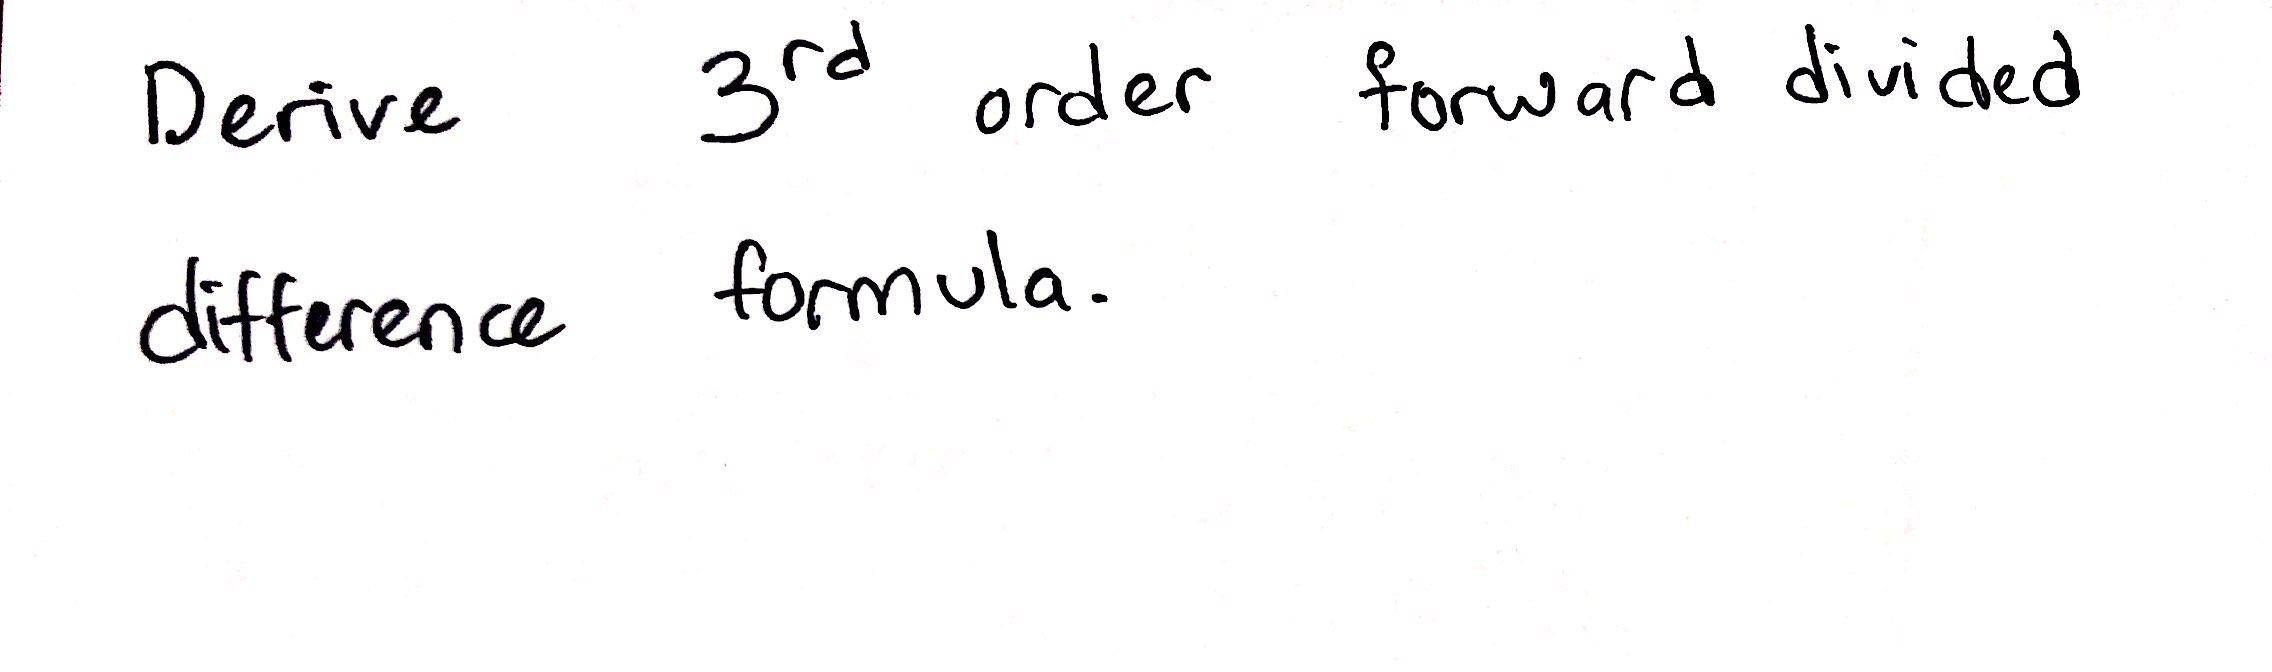 Derive 3rd order forward divided
difference formula.